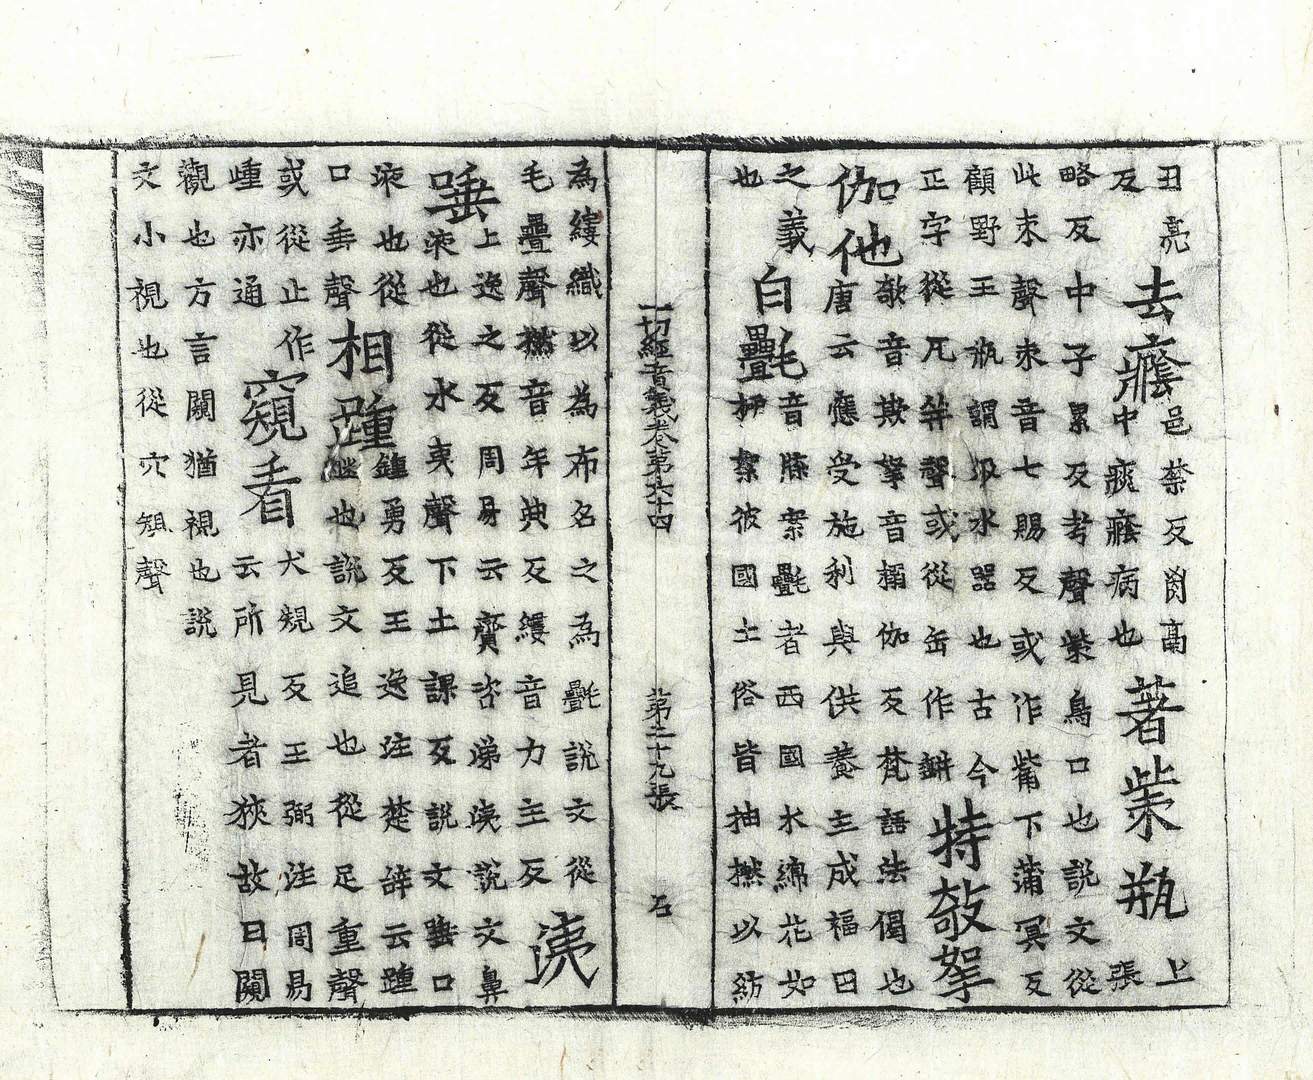 丑亮
反
去癊
邑禁反𦙄鬲
中痰癊病也
著紫瓶
上
張
略反中子累反考聲紫鳥口也說文從
此朿聲朿音七賜反或作觜下蒲冥反
顧野王瓶謂汲水器也古今
正字從瓦并聲或從缶作缾
持欹拏
伽他
欹音欺拏音搦伽反梵語法偈也
唐云應受施利與供養主成福田
之義
也
白㲲
音牒案㲲者西國木綿花如
柳絮彼國土俗皆抽撚以紡
一切經音義卷第六十四
第二十九張
石
為縷織以為布名之為㲲說文從
毛疊聲撚音年典反縷音力主反
洟
唾
上逸之反周易云齎咨涕洟說文鼻
液也從水夷聲下土課反說文唾口
液也從
口垂聲
相踵
鍾勇反王逸注楚辭云踵
繼也說文追也從足重聲
或從止作
歱亦通
窺看
犬規反王弼注周易
云所見者狹故曰闚
觀也方言闚猶視也說
文小視也從穴規聲